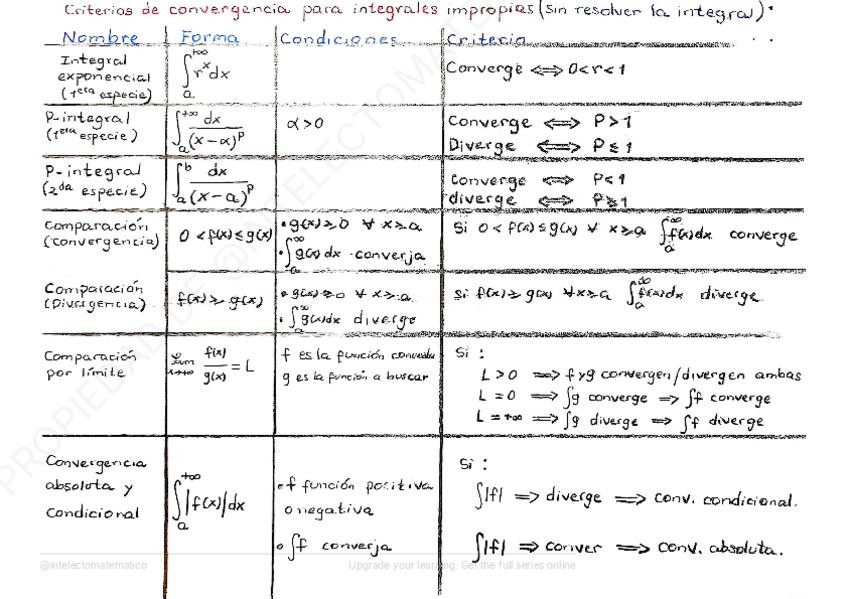 Criterios de convergencia para integrales impropias (sin resolver la integral).
Nombre Forma Condiciones Criterio
Integral exponencial (1era especie) ∫_a^{+∞} r^x dx Converge ⟺ 0<r<1
P-integral (1era especie) ∫_a^{+∞} dx/(x-α)^p α>0 Converge ⟺ P>1
Diverge ⟺ P≤1
P-integral (2da especie) ∫_a^b dx/(x-a)^p Converge ⟺ P<1
diverge ⟺ P≥1
Comparación (convergencia) 0<f(x)≤g(x) • g(x)≥0 ∀ x≥a
• ∫_a^∞ g(x)dx converja
Si 0<f(x)≤g(x) ∀ x≥a ∫_a^∞ f(x)dx converge
Comparación (Divergencia) f(x)≥g(x) • g(x)≥0 ∀ x≥a
• ∫_a^∞ g(x)dx diverge
Si f(x)≥g(x) ∀x≥a ∫_a^∞ f(x)dx diverge.
Comparación por límite lim_{x→+∞} f(x)/g(x) = L f es la función
g es la función a buscar
Si :
L>0 ⟹ f y g convergen/divergen ambas
L=0 ⟹ ∫g converge ⟹ ∫f converge
L=+∞ ⟹ ∫g diverge ⟹ ∫f diverge
Convergencia absoluta y condicional ∫_a^{+∞} |f(x)|dx • f función positiva
o negativa
• ∫f converja
Si :
∫|f| ⟹ diverge ⟹ conv. condicional.
∫|f| ⟹ conver ⟹ conv. absoluta.
PROPIEDAD DE @INTELECTOMATE
@intelectomatematico Upgrade your learning: Get the full series online